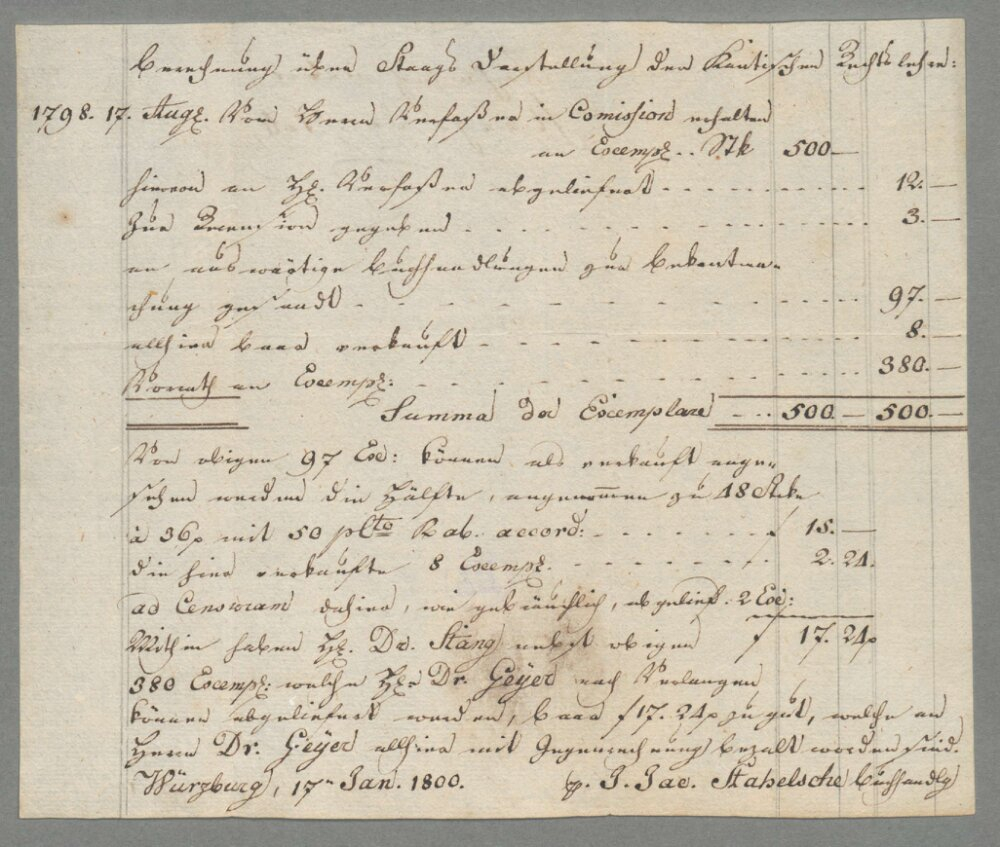 Berechnung über Stangs Darstellung der Kantischen Rechtslehre:
1798. 17. Augt. Vom Herrn Verfaßer in Comission erhalten
an Exempl. . Stk 500.—
hievon an H. Verfaßer abgeliefert - - - - - - 12.—
Zur Recension gegeben - - - - - - 3.—
an auswärtige Buchhandlungen zur Bekantma=
chung gesandt - - - - - - 97.—
allhier baar verkauft - - - - - - 8.—
Vorrath an Exempl: - - - - - - 380.—
Summa der Exemplare - - - 500.— 500.—
Von obigen 97 Ex: können als verkauft ange=
sehen werden die Hälfte, angenommen zu 48 Stke
à 36 mit 50 Rab. accord: - - - - - - f 15.—
die hier verkaufte 8 Exempl. - - - - - - f. 2. 24.
ad Censuram dahier, wie gebräuchlich, abgelief. 2 Ex:
Mithin haben H. Dr. Stang nebst obigen f 17. 24
380 Exempl: welche H. Dr. Geÿer nach Verlangen
können abgeliefert werden, baar f 17. 24 zu gut, welche an
Herrn Dr. Geÿer allhier mit Gegenrechnung bezalt worden sind.
Würzburg, 17n Jan. 1800. p. J. Jac. Stahelsche Buchhandlg